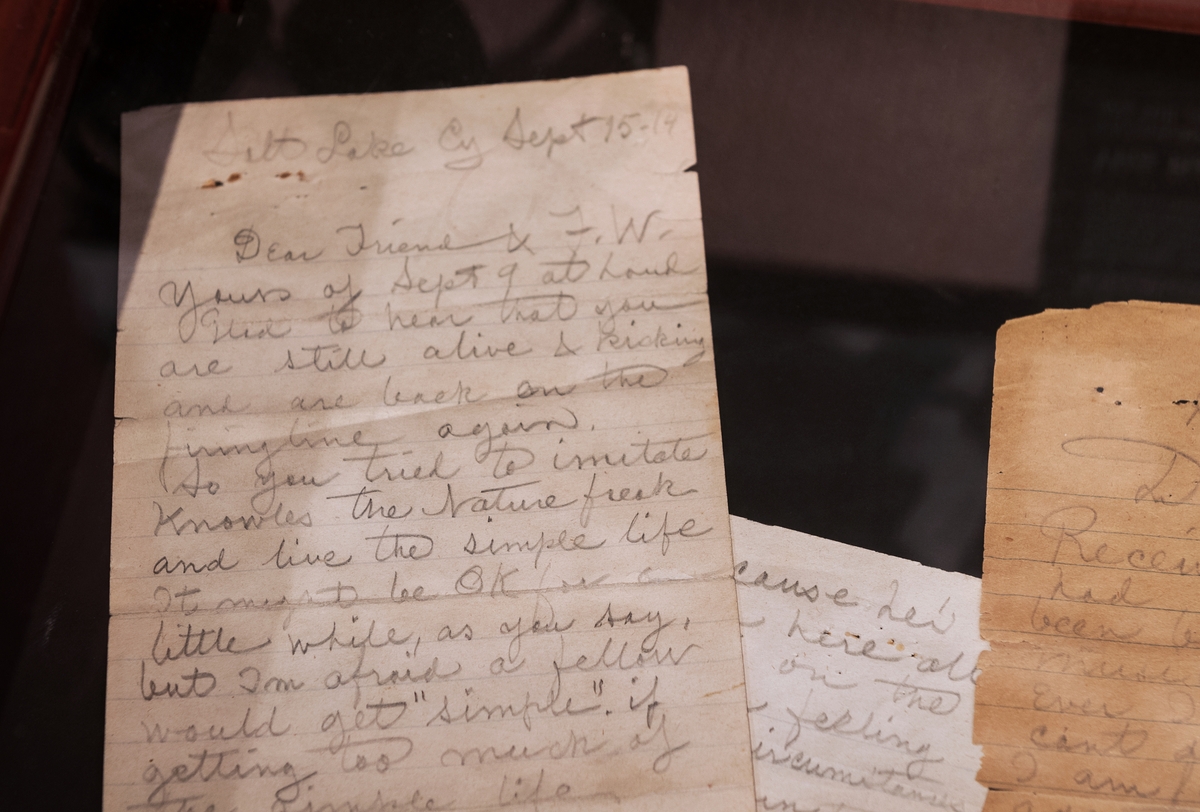 Salt Lake Cy Sept 15-14
Dear Friend & F.W.
Yours of Sept 9 at hand
Glad to hear that you
are still alive & kicking
and are back on the
firing line again.
So you tried to imitate
Knowles the Nature freak
and live the simple life
It might be OK for a
little while, as you say,
but I'm afraid a fellow
would get "simple". if
getting too much of
the simple life
cause he's
here all
on the
feeling
had
been
Ever
cant
I am